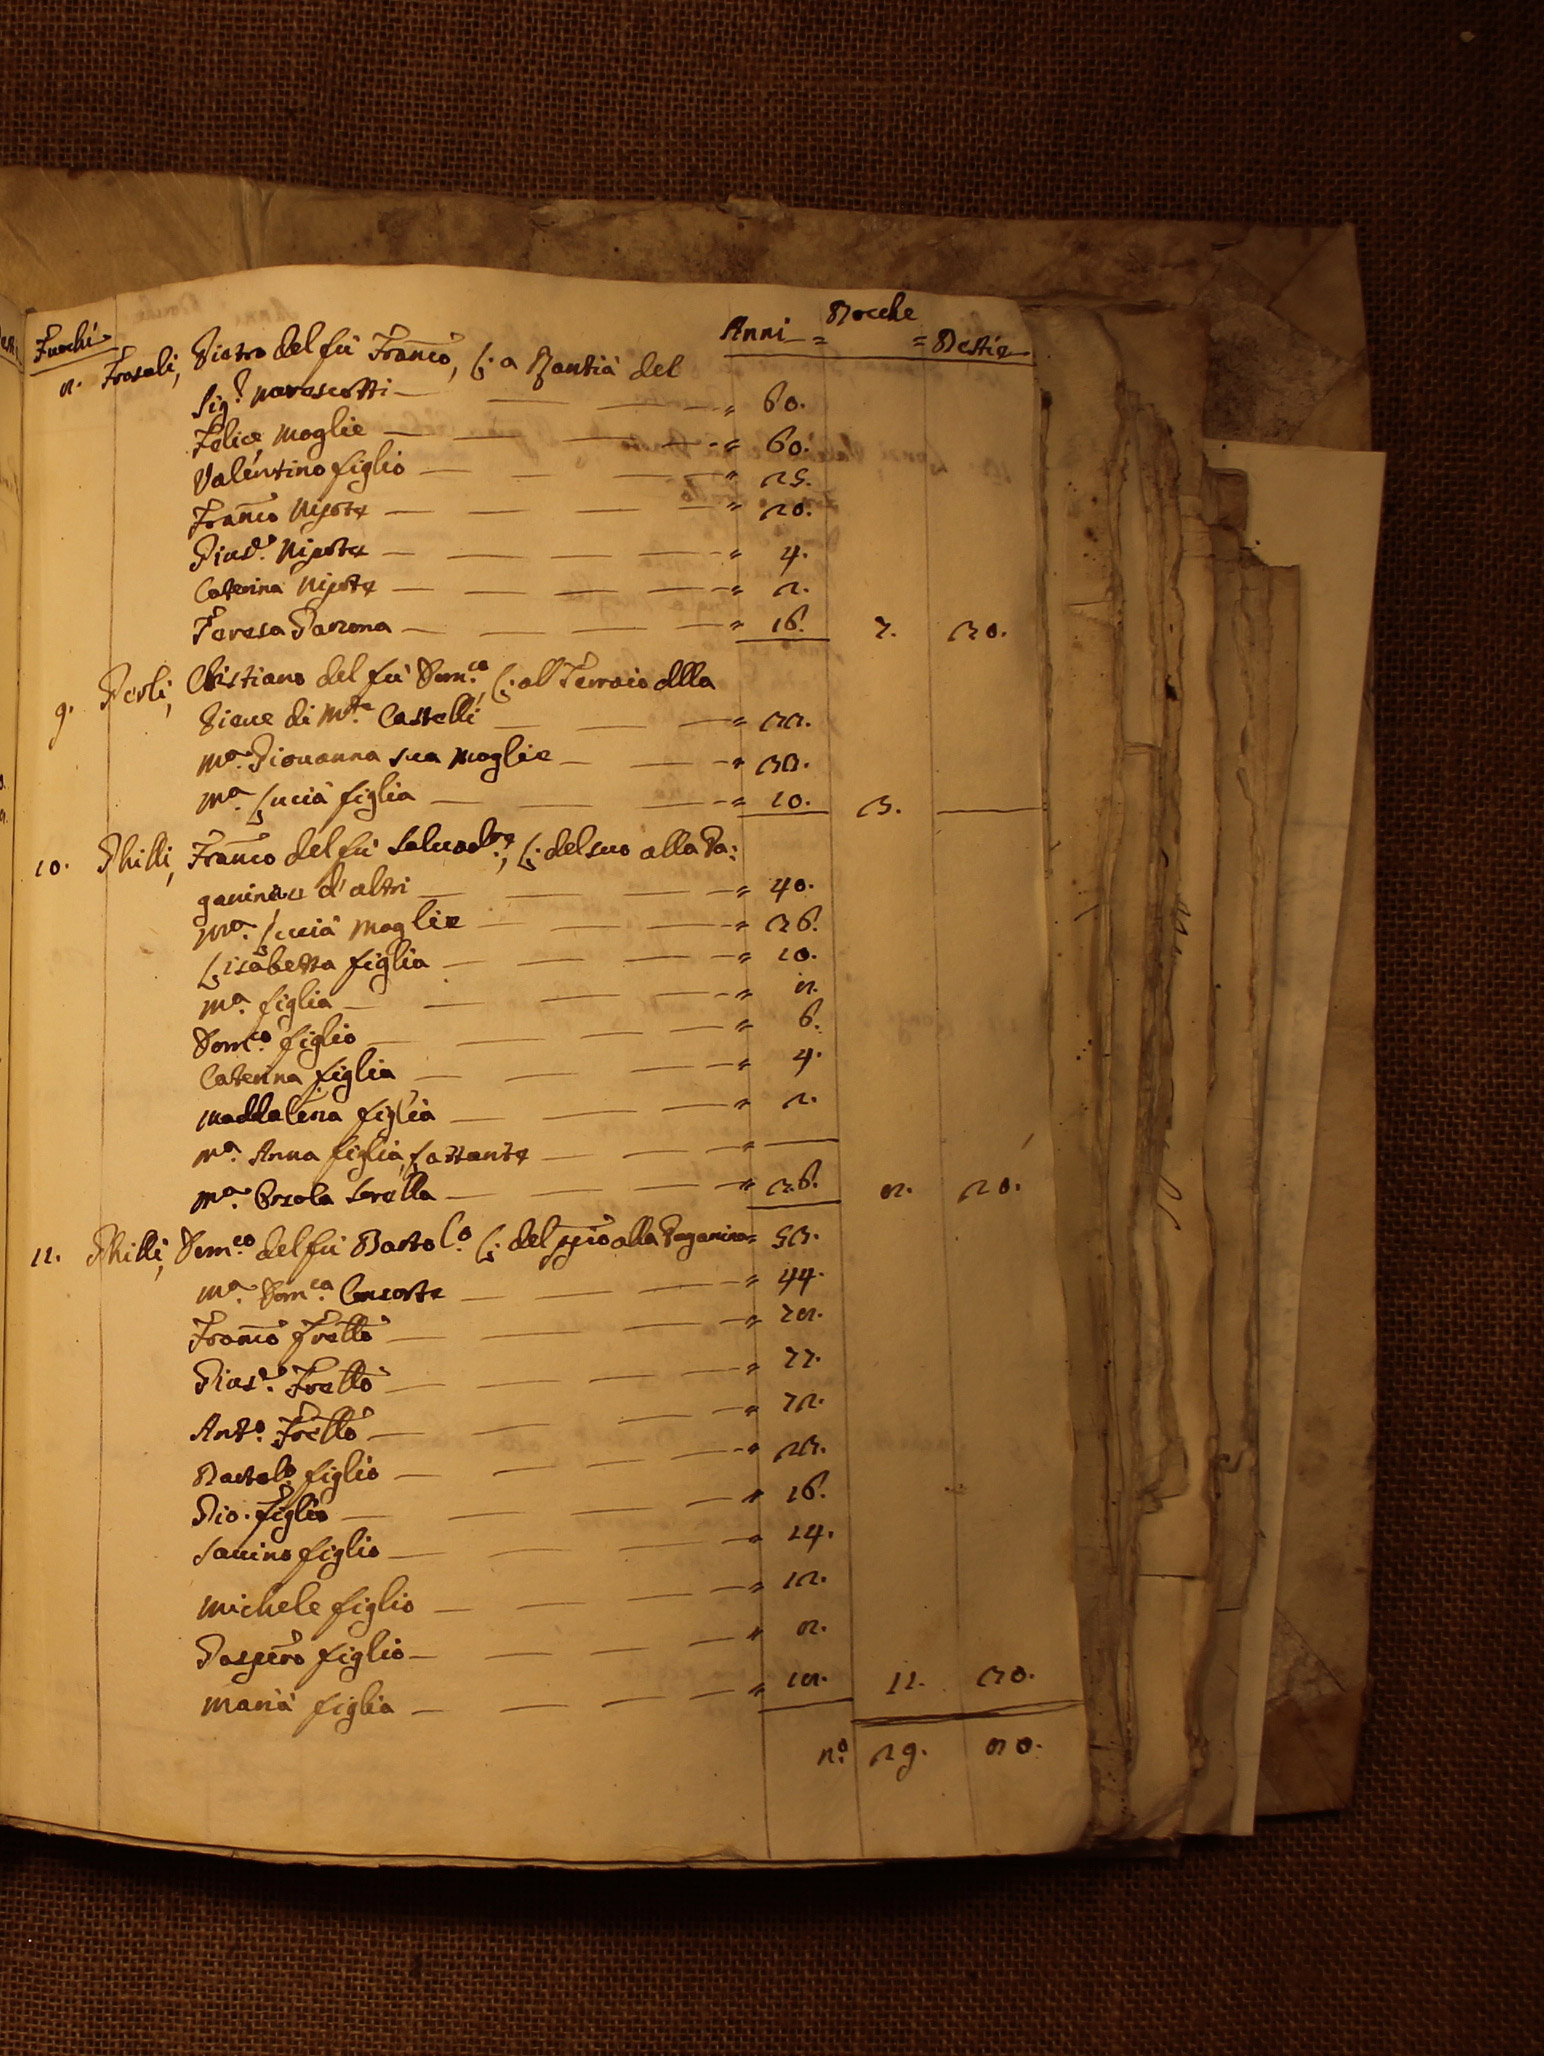 Fuochi
Anni = Bocche = Bestie
8. Frosali, Pietro del fù Franco, (: a Bontià del
Sig.r Marescotti — " 60.
Felice Moglie — " 60.
Valentino figlio — " 25.
Franco Nipote — " 20.
Gius.e Nipote — " 4.
Caterina Nipote — " 2.
Teresa Garzona — " 16. 7. 30.
9. Perli, Cristiano del fù Dom.co, (: al Terraio della
Pieve di M.te Castelli — "
M.a Giovanna sua Moglie — " 33.
M.a Lucia figlia — " 10. 3. —
10. Ghilli, Franco del fù Salvad.re, (: del suo alla Pa:
ganina e d'altri — " 40.
M.a Lucia Moglie — " 36.
Lisabetta figlia — " 10.
M.a figlia — " 8.
Dom.co figlio — " 6.
Caterina figlia — " 4.
Maddalena figlia — " 2.
M.a Anna figlia, Lattante — " —
M.a Orsola Sorella — " 36. 8. 20.
11. Ghilli, Dom.co del fù Bartol.o (: del pprio alla Paganina = 53.
M.a Dom.ca Consorte — " 44.
Franco Frello — " 78.
Gius.e Frello — " 77.
Ant.o Frello — " 72.
Bartol.o figlio — " 23.
Gio. figlio — " 16.
Savino figlio — " 14.
Michele figlio — " 12.
Gaspero figlio — " 8.
Maria figlia — " 18. 11. 30.
n.o 29. 80.